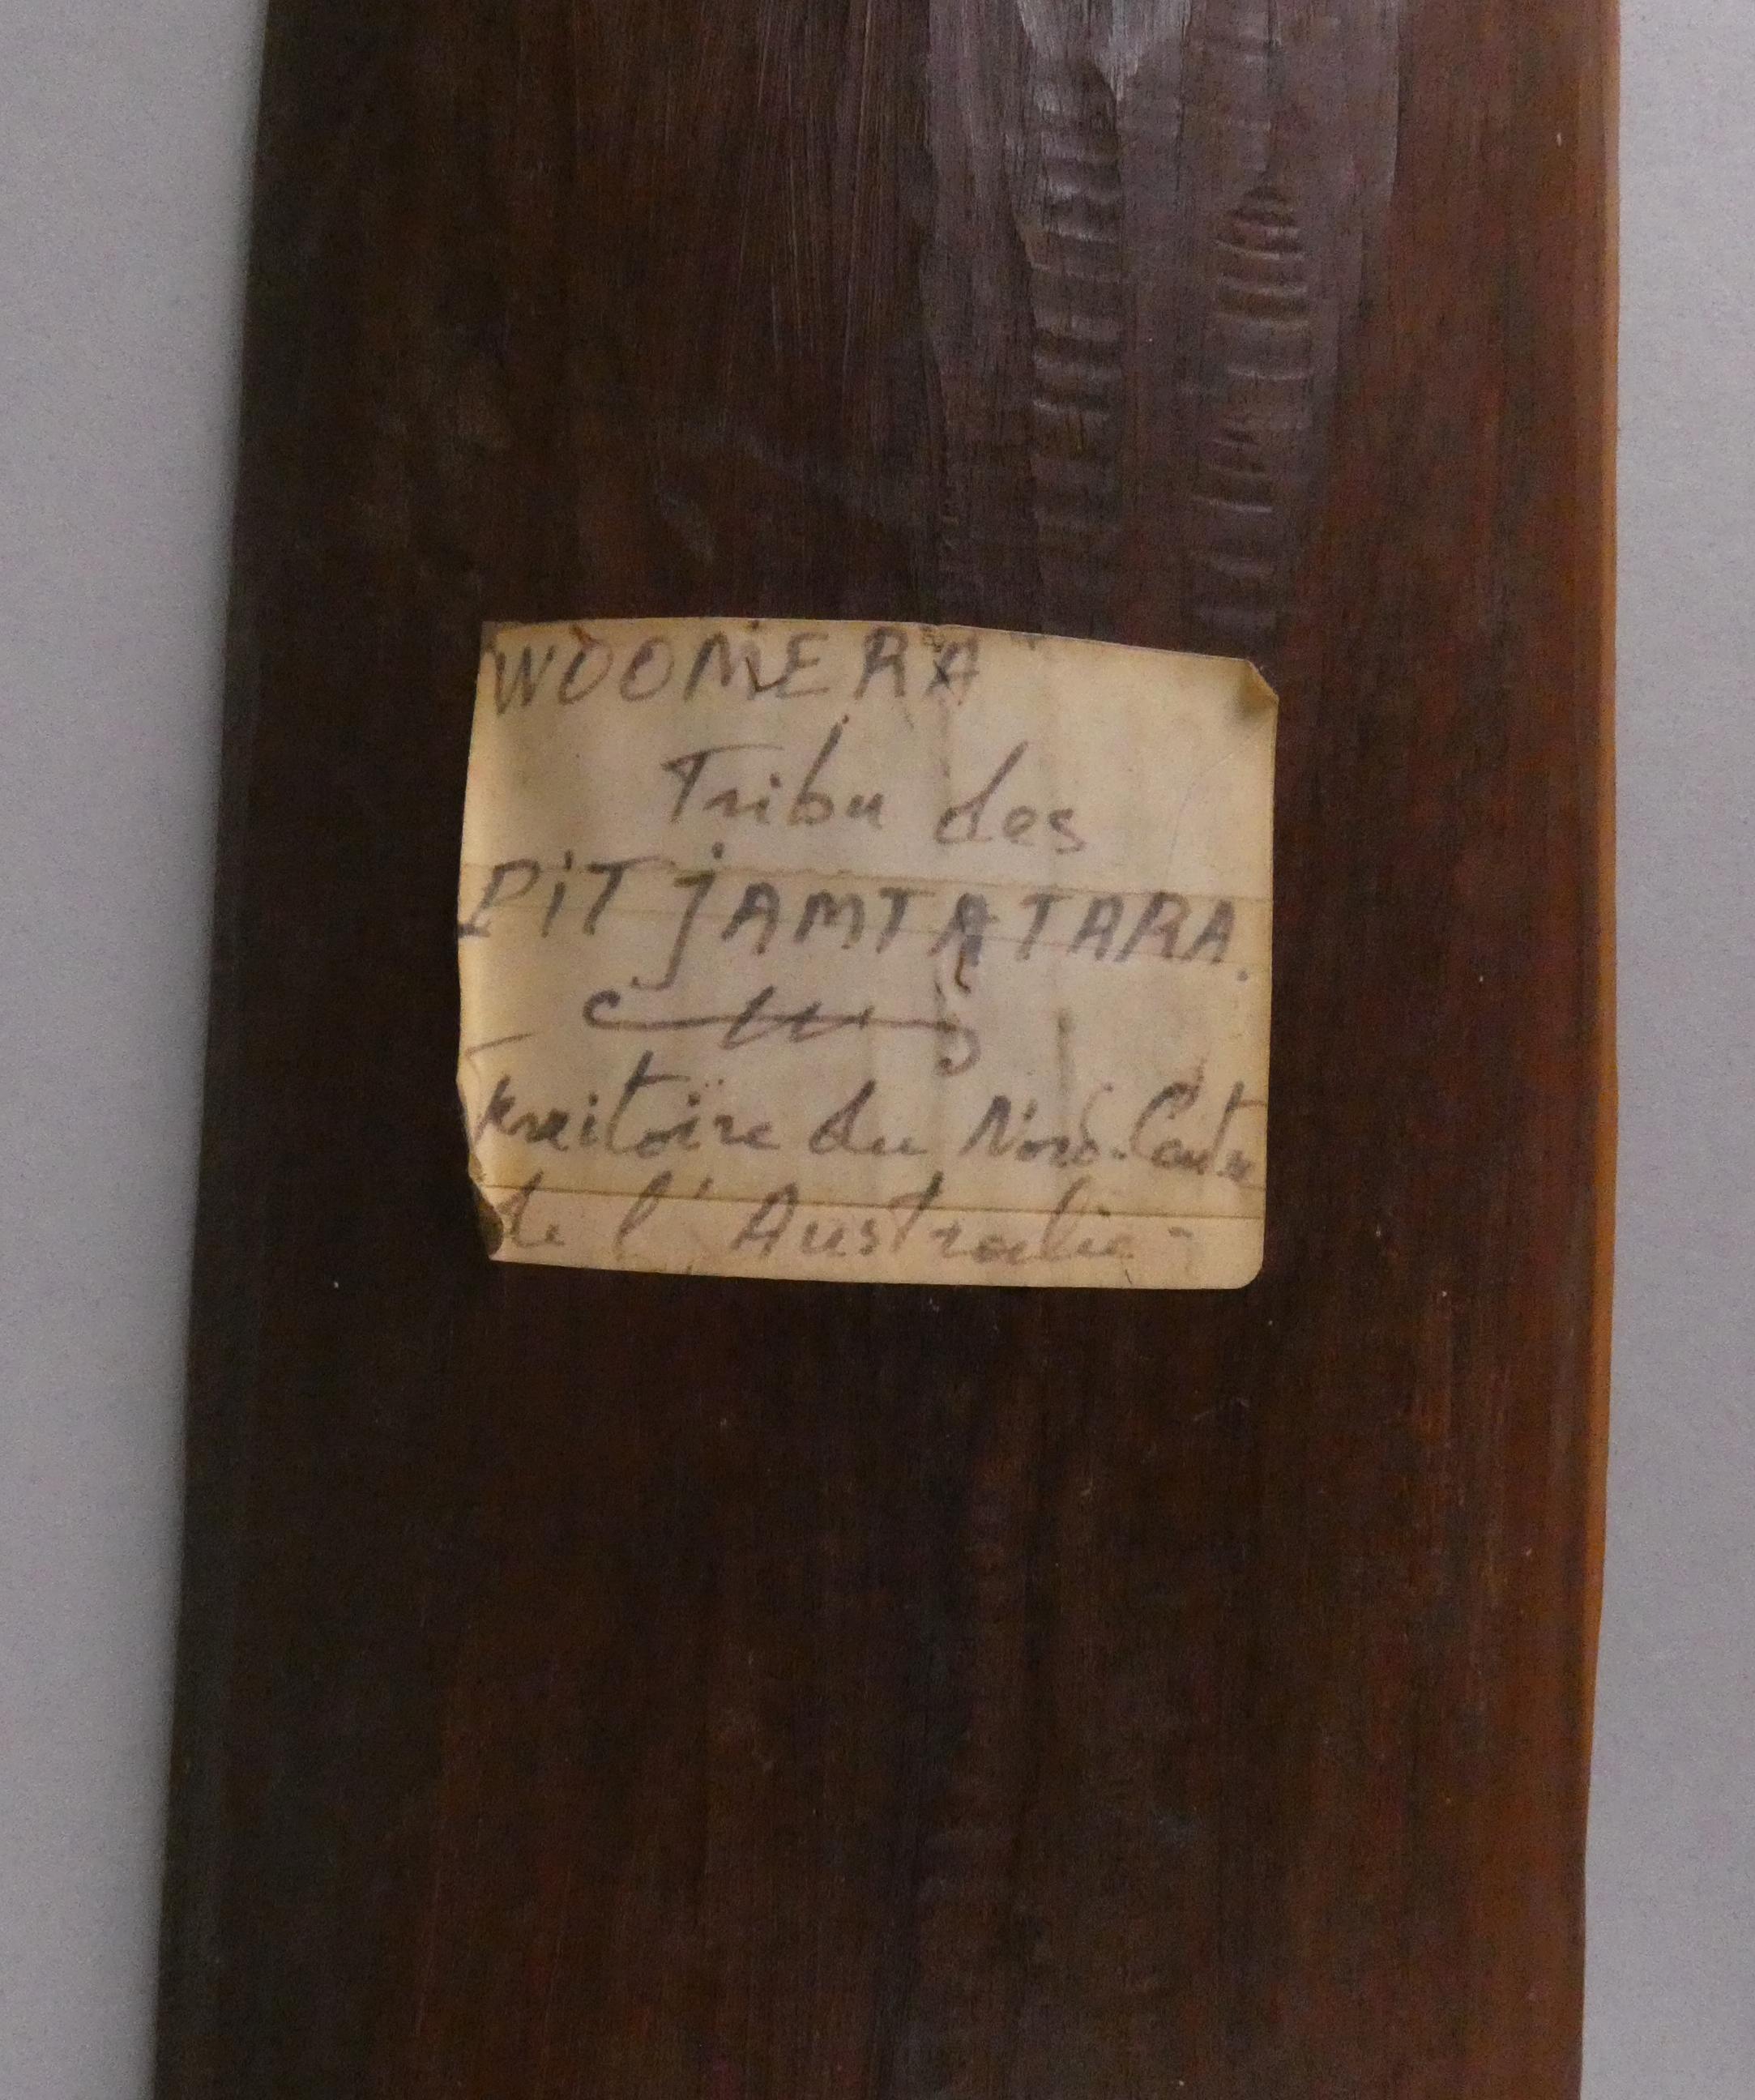 WOOMERA
Tribu des
PiTjAMTATARA.
Territoïre du Nord-Centre
de l'Australie-